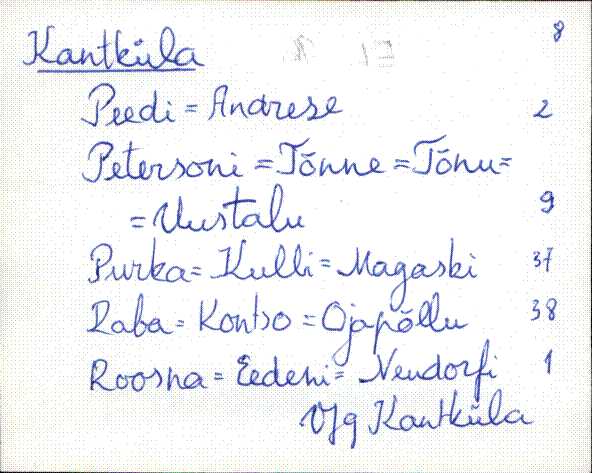 Kantküla 8
Peedi = Andrese 2
Petersoni = Tõnne = Tõnu =
= Uustalu 9
Purka = Kulli = Magaski 37
Raba = Kontso = Ojapõllu 38
Roosna = Eedeni = Neudorfi 1
Vjg Kantküla